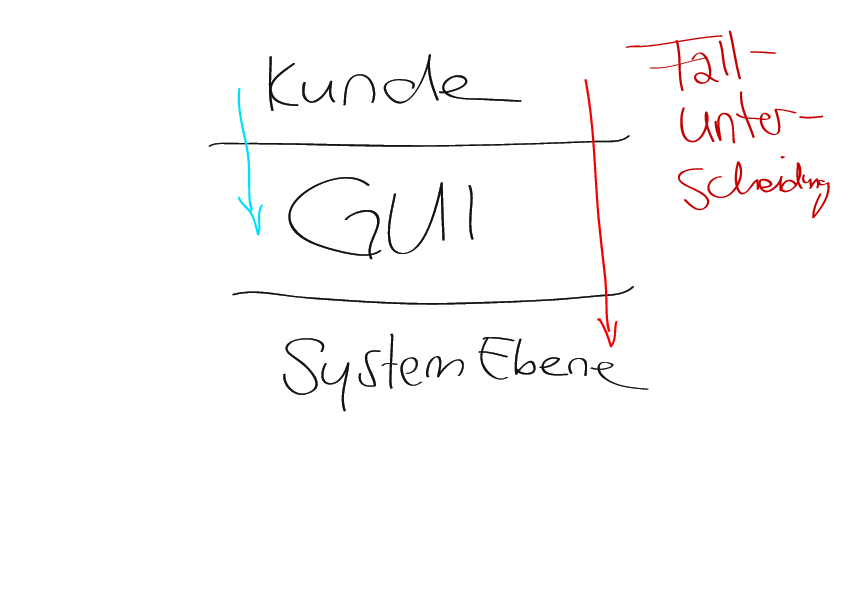 Kunde
GUI
System Ebene
Fall-
unter-
scheidung